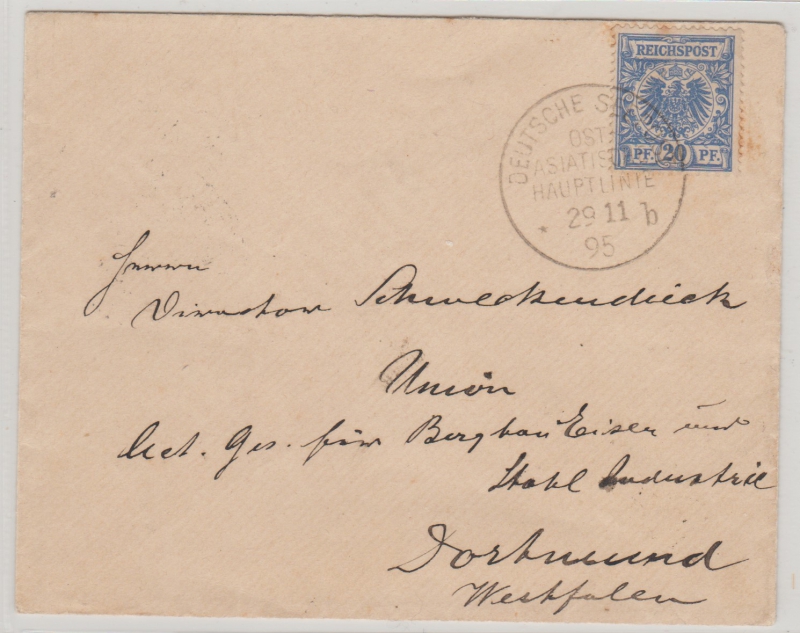 REICHSPOST
PF. 20 PF.
DEUTSCHE
OST
ASIATIS
HAUPTLINIE
* 29 11 b
95
Herrn
Director Schweckendieck
Union
Act. Ges. für Bergbau Eisen und
Stahl Industrie
Dortmund
Westfalen